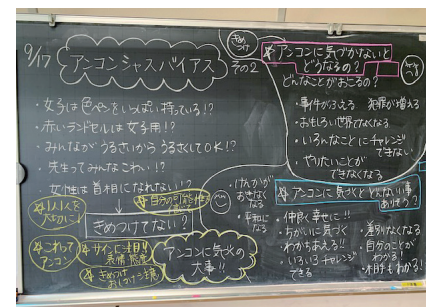 9/17
アンコンシャスバイアス
その2
きめつけ
・女子は色ペンをいっぱい持っている!?
・赤いランドセルは女子用!?
・みんながうるさいからうるさくしてOK!?
・先生ってみんなこわい!?
・女性は首相になれない!?
☆1人1人を
大切に
☆自分の可能性を
きめつけてない?
☆これって
アンコン
☆サインに注目!!
表情・態度
☆きめつけ
おしつけ注意
アンコンに気づくの
大事!!
☆アンコンに気づかないと
どうなるの?
どんなことがおこるの?
・事件がふえる 犯罪が増える
・おもしろい世界でなくなる
・いろんなことにチャレンジ
できない
・やりたいことが
できなくなる
・けんかが
おきなく
なる
・平和に
なる
☆アンコンに気づくとどんないい事
ありそう?
・仲良く幸せに!!
・ちがいに気づく
わかちあえる!!
・いろいろチャレンジ
できる
・差別なくなる
・自分のことが
わかる!
・相手もわかる!